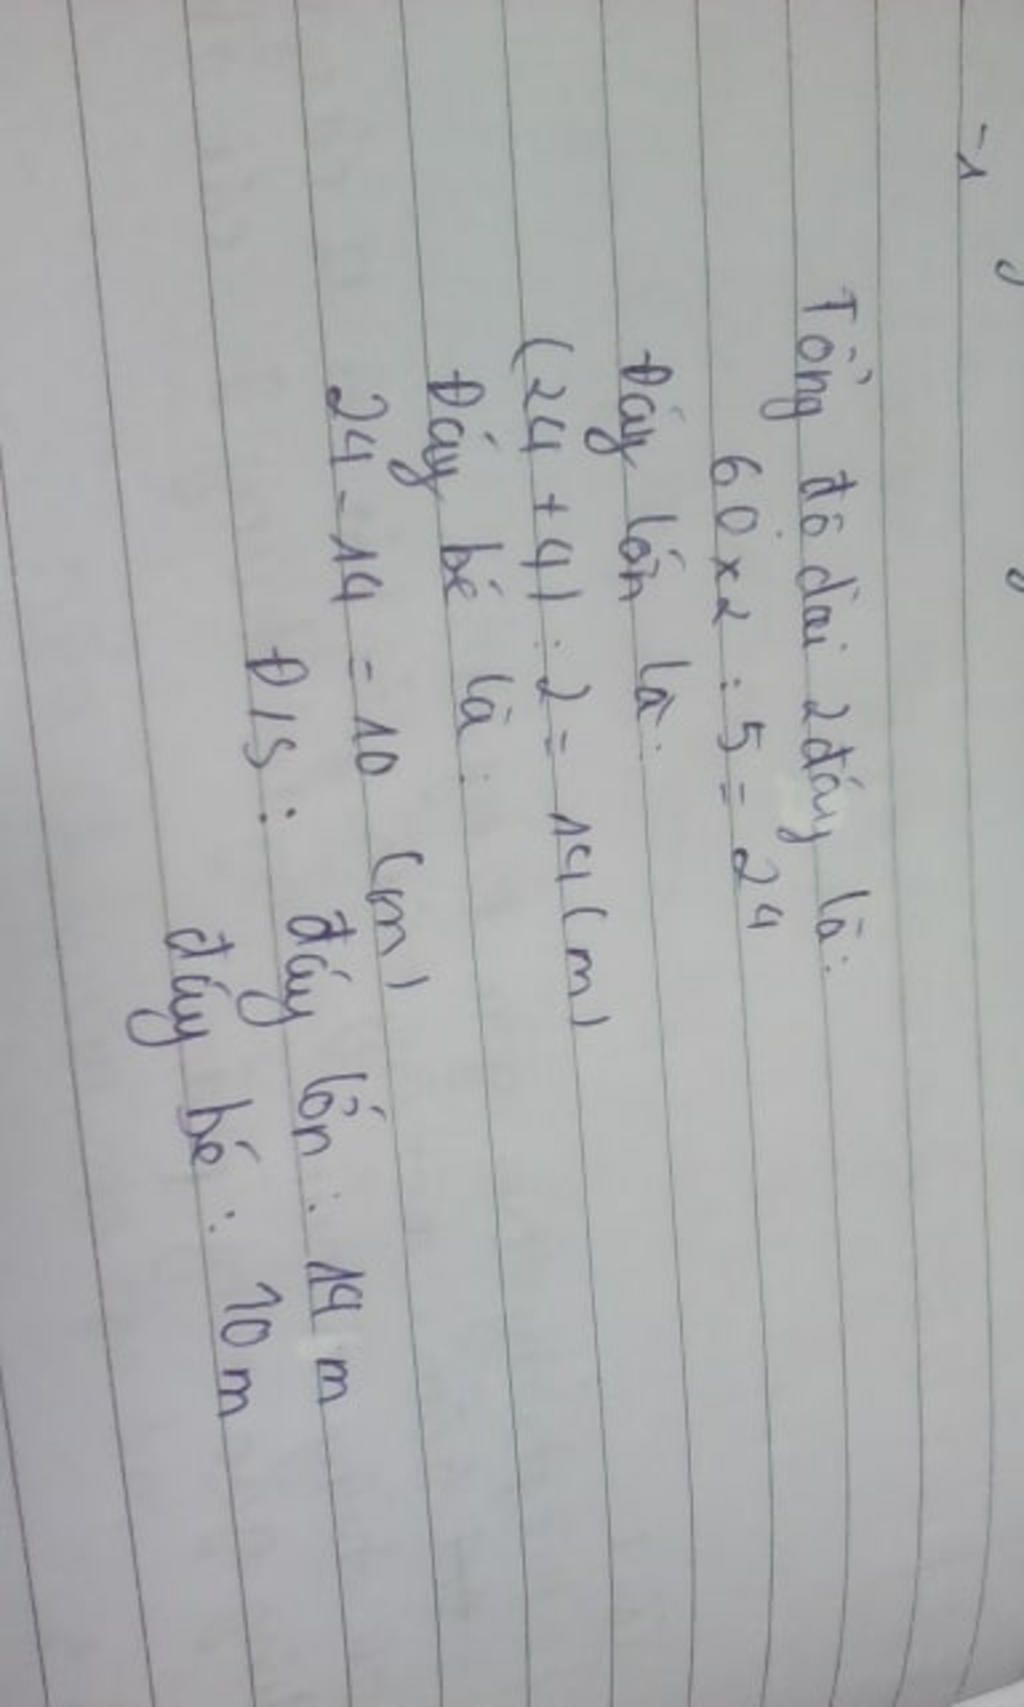 Tổng độ dài 2 đáy là:
60 x 2 : 5 = 24
Đáy lớn là:
(24 + 4) : 2 = 14 (m)
Đáy bé là:
24 - 14 = 10 (m)
Đ/S: đáy lớn: 14 m
đáy bé: 10 m